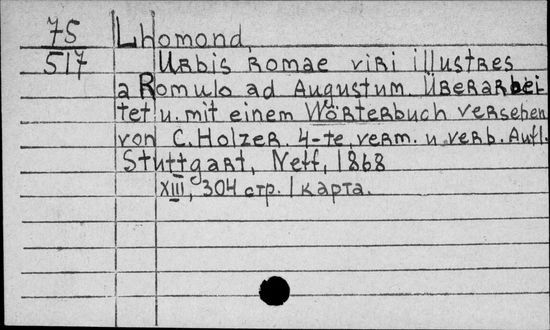 75
517
Lhomond,
Urbis Romae viri illustres
a Romulo ad Augustum. Überarbei-
tet u. mit einem Wörterbuch versehen
von C. Holzer. 4-te, verm. u. verb. Aufl.
Stuttgart, Neff, 1868
XIII, 304 стр. 1 карта.